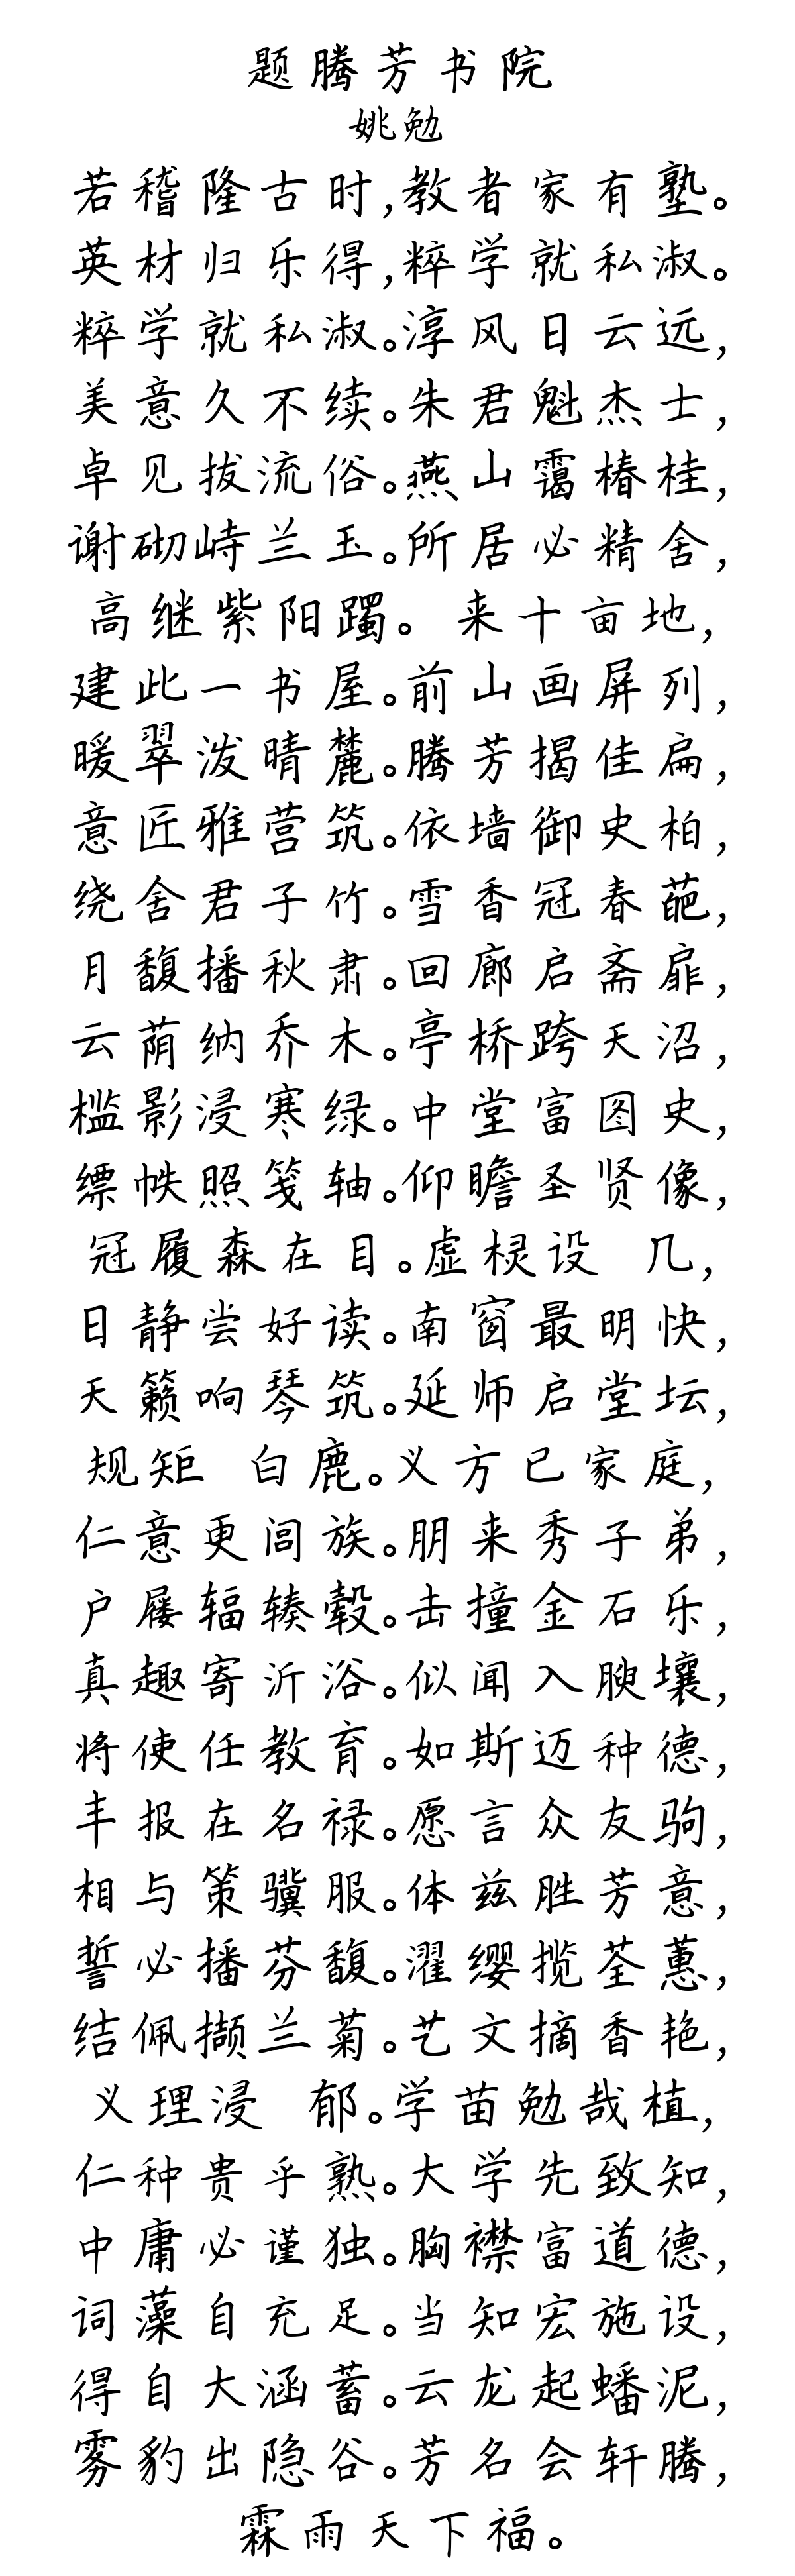 题腾芳书院
姚勉
若稽隆古时,教者家有塾。
英材归乐得,粹学就私淑。
粹学就私淑。淳风日云远,
美意久不续。朱君魁杰士,
卓见拔流俗。燕山霭椿桂,
谢砌峙兰玉。所居必精舍,
高继紫阳躅。来十亩地,
建此一书屋。前山画屏列,
暖翠泼晴麓。腾芳揭佳扁,
意匠雅营筑。依墙御史柏,
绕舍君子竹。雪香冠春葩,
月馥播秋肃。回廊启斋扉,
云荫纳乔木。亭桥跨天沼,
槛影浸寒绿。中堂富图史,
缥帙照笺轴。仰瞻圣贤像,
冠履森在目。虚棂设 几,
日静尝好读。南窗最明快,
天籁响琴筑。延师启堂坛,
规矩 白鹿。义方已家庭,
仁意更闾族。朋来秀子弟,
户屦辐辏毂。击撞金石乐,
真趣寄沂浴。似闻入腴壤,
将使任教育。如斯迈种德,
丰报在名禄。愿言众友驹,
相与策骥服。体兹胜芳意,
誓必播芬馥。濯缨揽荃蕙,
结佩撷兰菊。艺文摘香艳,
义理浸 郁。学苗勉哉植,
仁种贵乎熟。大学先致知,
中庸必谨独。胸襟富道德,
词藻自充足。当知宏施设,
得自大涵蓄。云龙起蟠泥,
雾豹出隐谷。芳名会轩腾,
霖雨天下福。